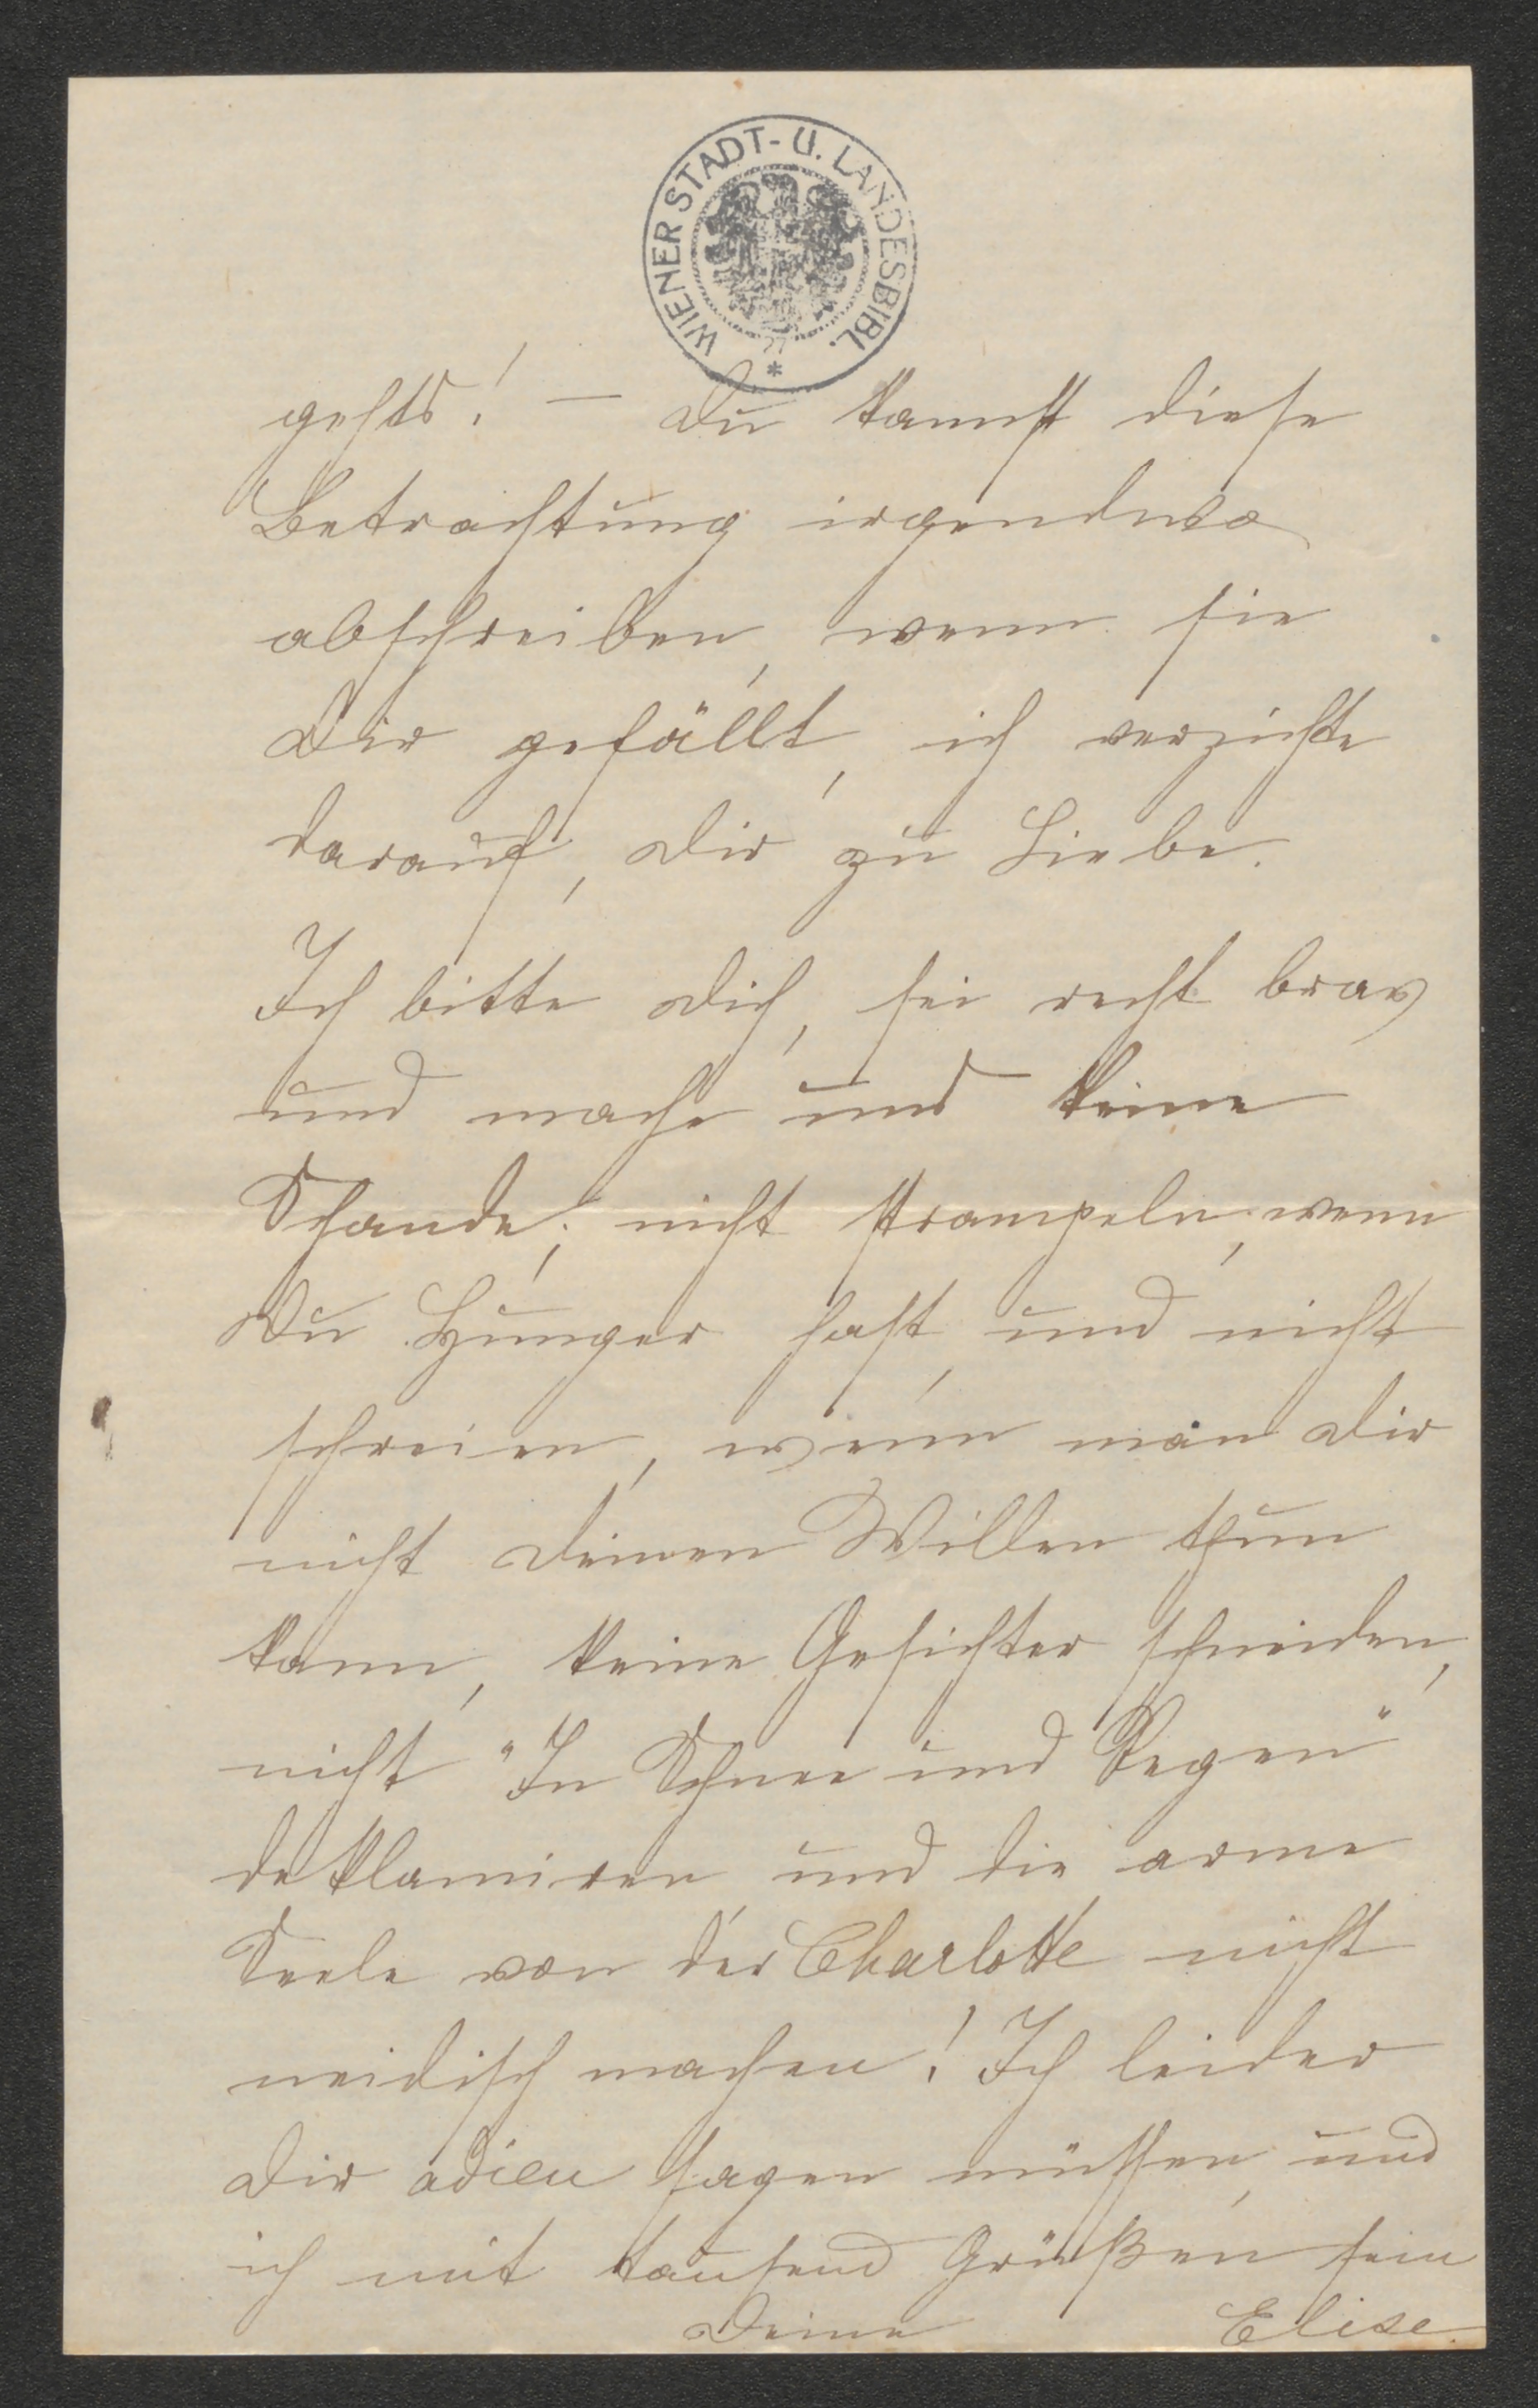 WIENER STADT- U. LANDESBIBL.
gehts! — Du kannst diese
Betrachtung irgendwo
abschreiben, wenn sie
Dir gefällt, ich verzichte
darauf, Dir zu Liebe.
Ich bitte Dich, sei recht brav
und mache uns keine
Schande; nicht strampeln, wenn
Du Hunger hast, und nicht
schreien, wenn man Dir
nicht Deinen Willen thun
kann, keine Gesichter schneiden,
nicht "In Schnee und Regen"
deklamiren, und die arme
Seele von der Charlotte nicht
neidisch machen! Ich leider
Dir adieu sagen müssen, und
ich mit tausend Grüßen sein
Deine Elise.